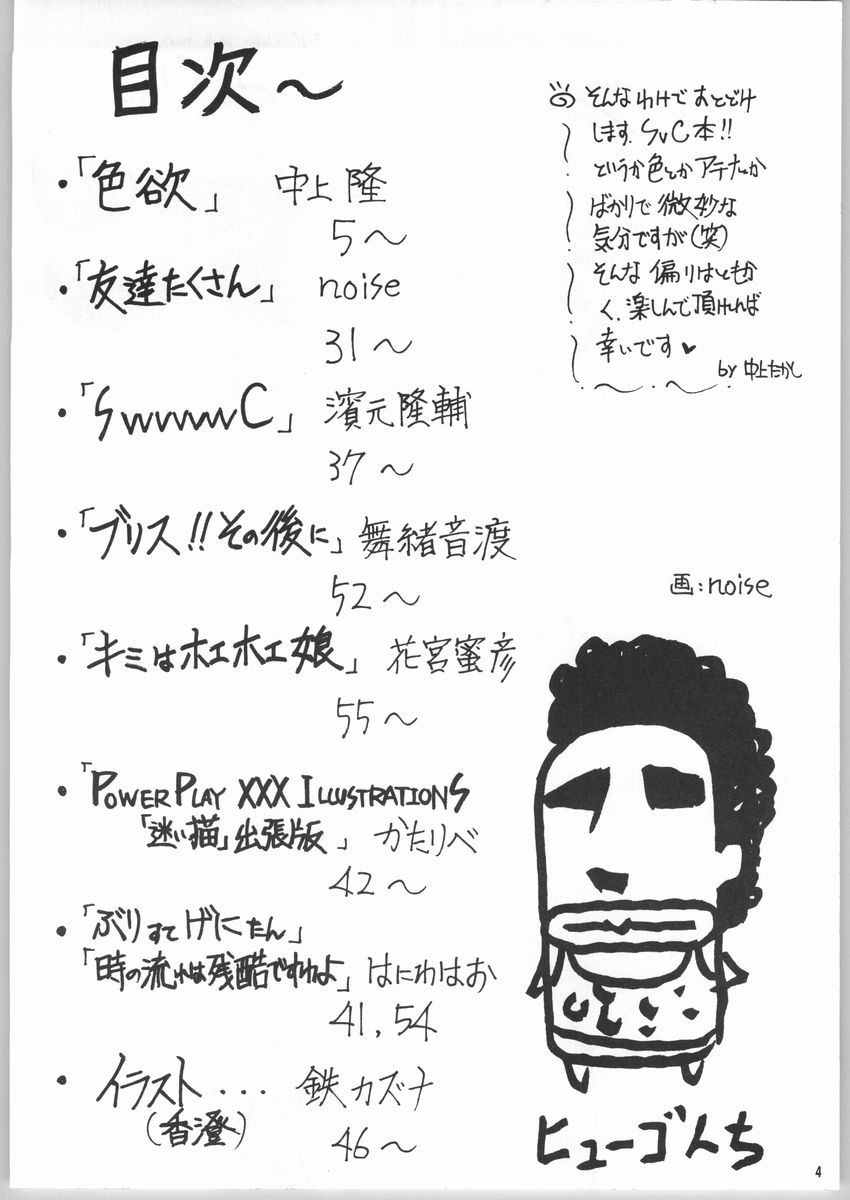 目次～
・「色欲」 中上 隆
5～
・「友達たくさん」 noise
31～
・「SwvwvwC」 濱元隆輔
37～
・「ブリス!!その後に」 舞緒音渡
52～
・「キミはホエホエ娘」 花宮蜜彦
55～
・「POWER PLAY XXX ILLUSTRATIONS
「迷い猫」出張版」 かたりべ
42～
・「ぶりすてげにたん」
「時の流れは残酷ですわよ」 はにわはお
41, 54
・ イラスト... 鉄カズナ
(香澄) 46～
そんなわけで おとどけ
します。SvC本!!
というか色とかアテナとか
ばかりで 微妙な
気分ですが(笑)
そんな 偏りはともか
く、楽しんで頂ければ
幸いです♥
by 中上たかし
画:noise
ヒューゴんち
4